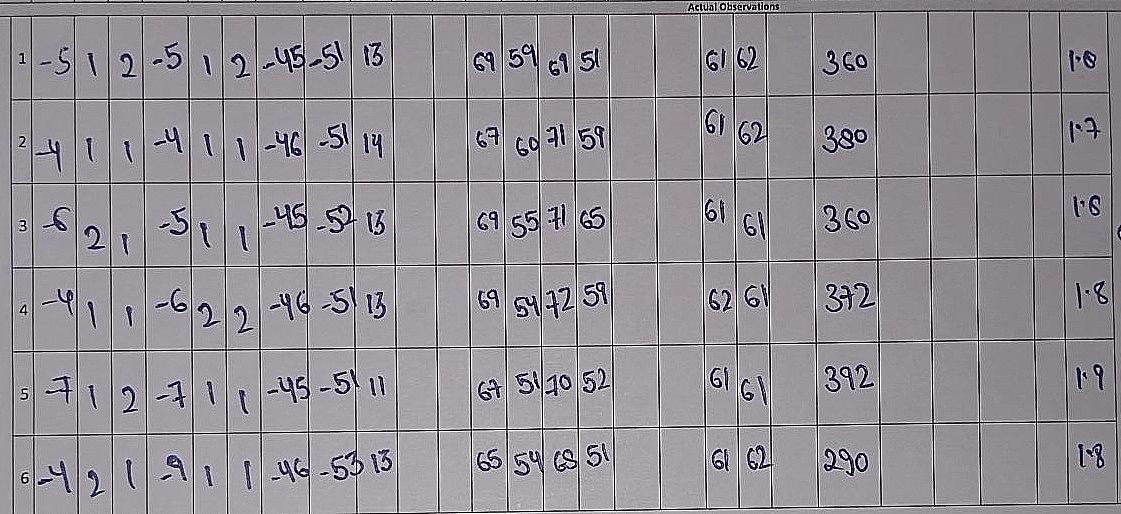 Actual Observations
1 -5 1 2 -5 1 2 -45 -51 13 69 59 69 51 61 62 360 1.8
2 -4 1 1 -4 1 1 -46 -51 14 67 60 71 59 61 62 380 1.7
3 -6 2 1 -5 1 1 -45 -52 13 69 55 71 65 61 61 360 1.8
4 -4 1 1 -6 2 2 -46 -51 13 69 54 72 59 62 61 372 1.8
5 -7 1 2 -7 1 1 -45 -51 11 67 51 70 52 61 61 392 1.9
6 -4 2 1 -9 1 1 -46 -53 13 65 54 68 51 61 62 290 1.8